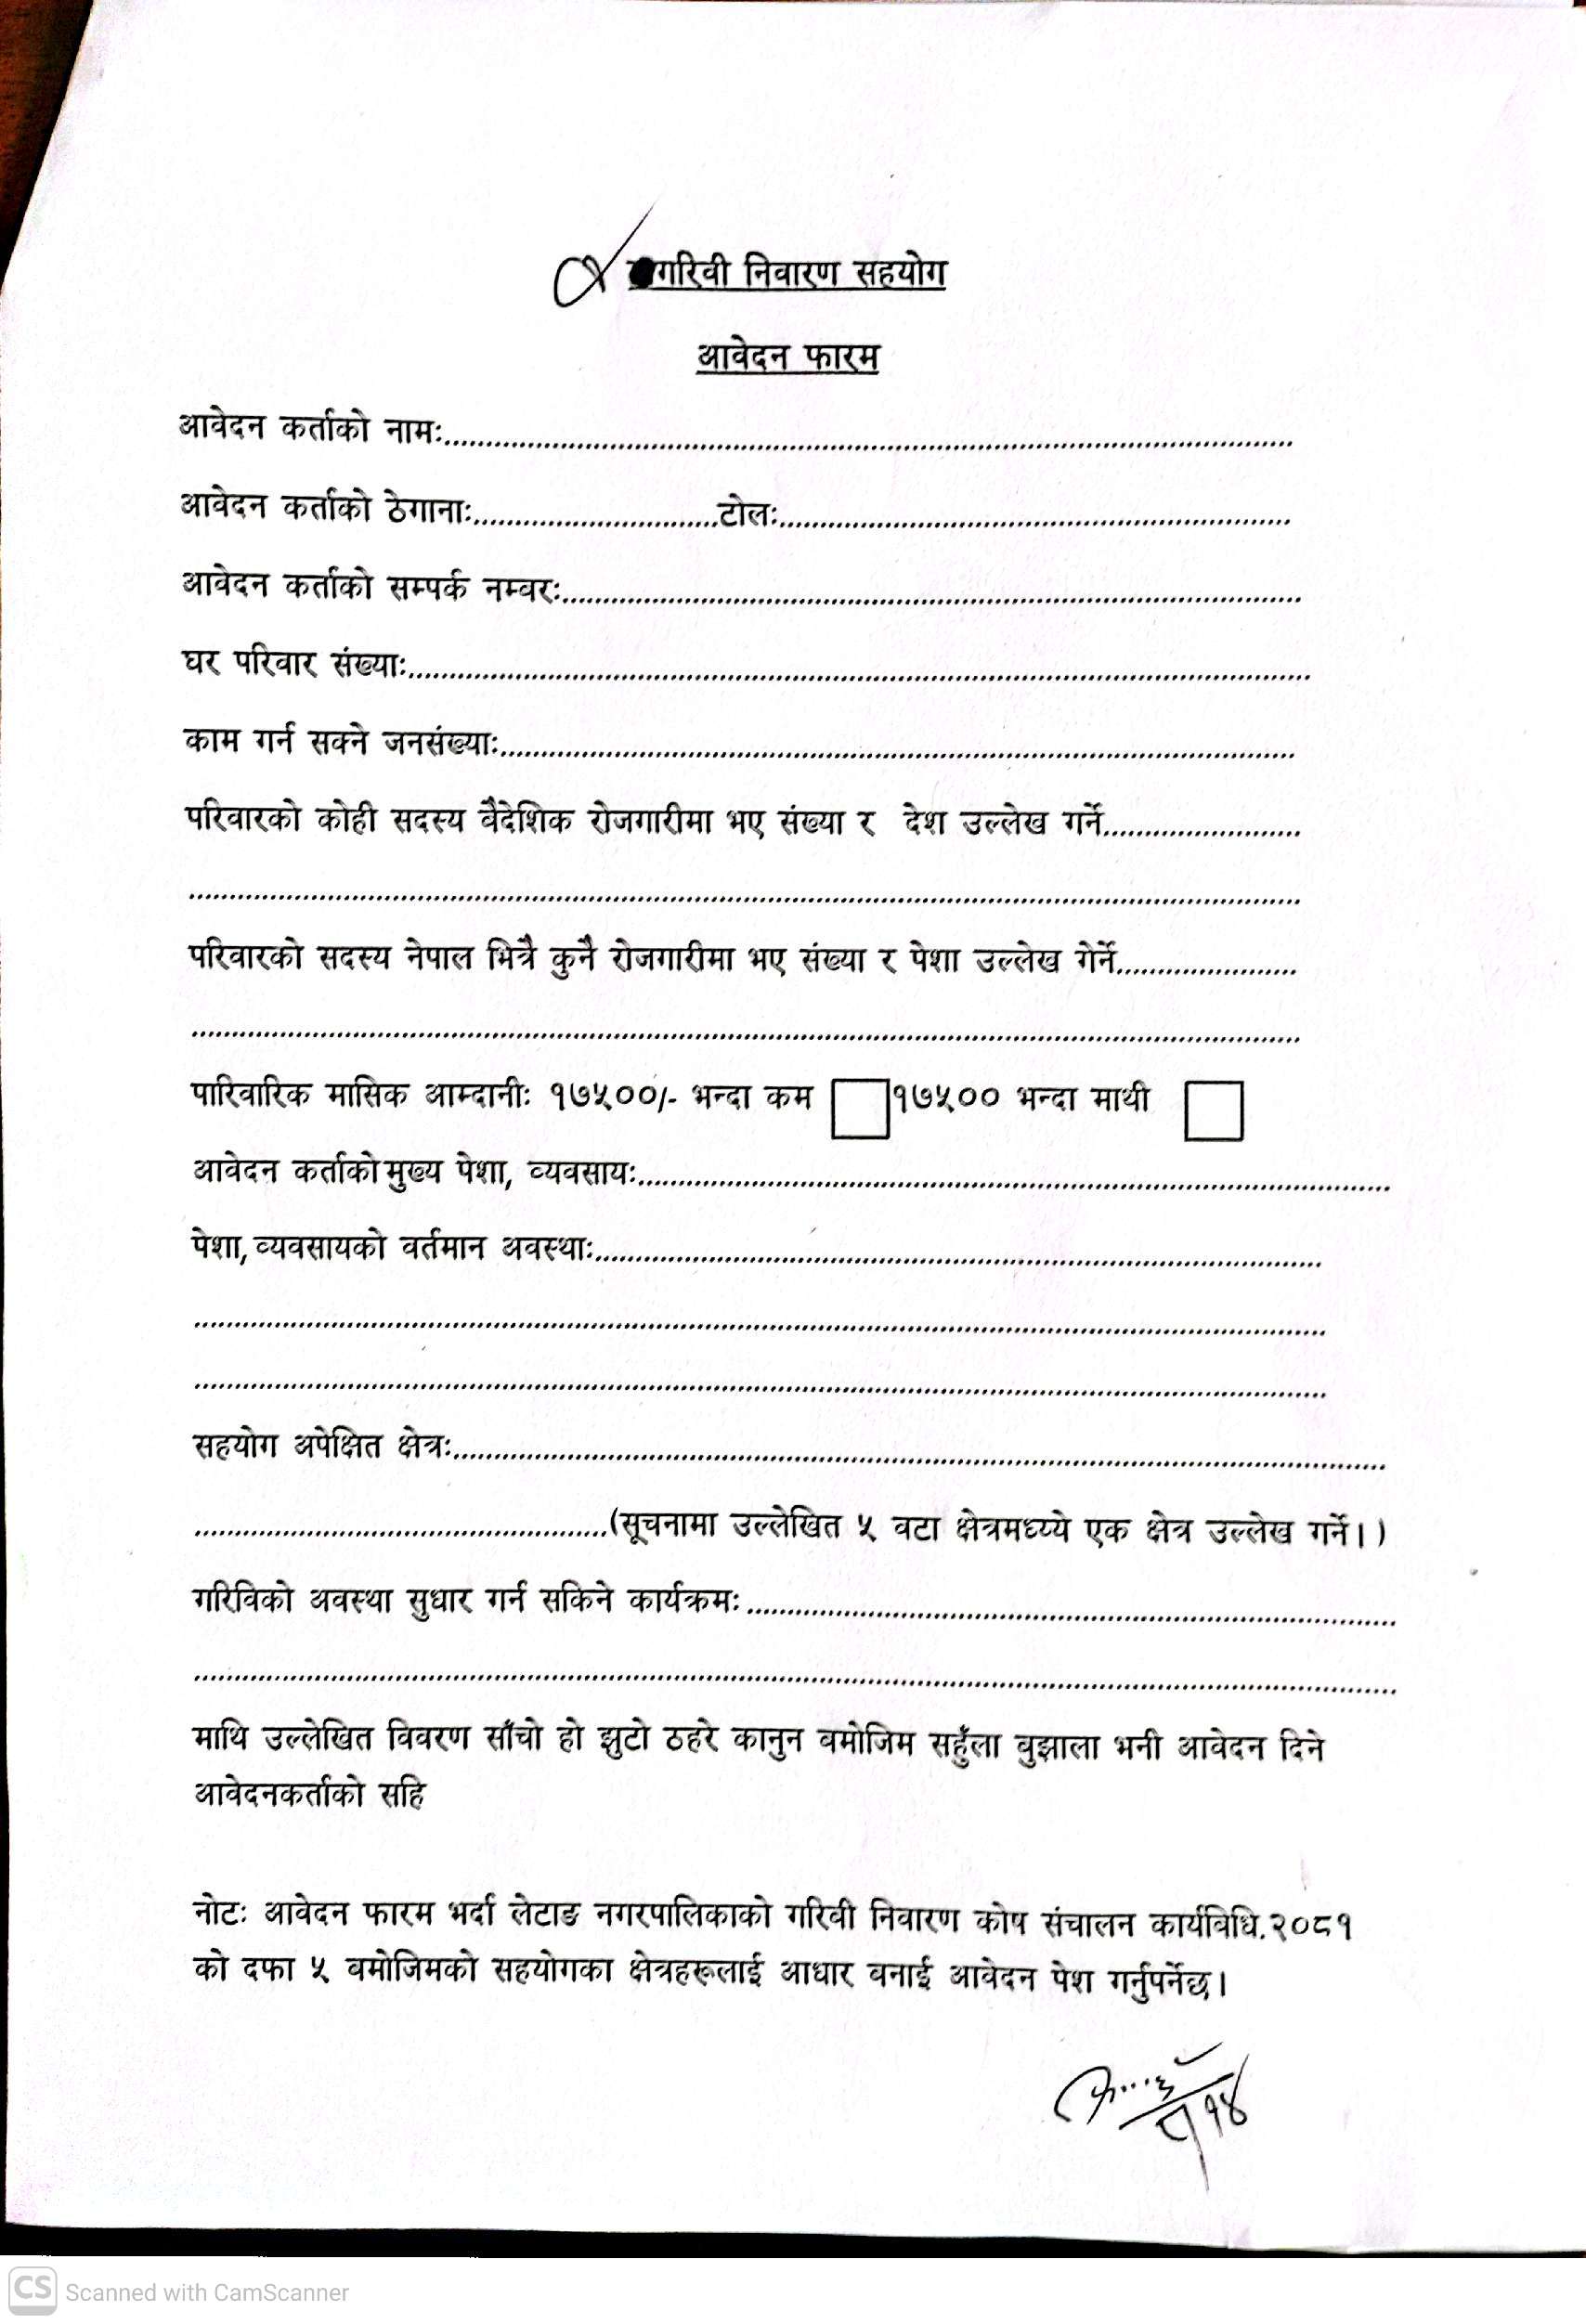 गरिवी निवारण सहयोग
आवेदन फारम
आवेदन कर्ताको नामः....................................................................................................
आवेदन कर्ताको ठेगानाः..............................टोलः..............................................................
आवेदन कर्ताको सम्पर्क नम्वरः..........................................................................................
घर परिवार संख्याः............................................................................................................
काम गर्न सक्ने जनसंख्याः................................................................................................
परिवारको कोही सदस्य वैदेशिक रोजगारीमा भए संख्या र देश उल्लेख गर्ने........................
........................................................................................................................................
परिवारको सदस्य नेपाल भित्रै कुनै रोजगारीमा भए संख्या र पेशा उल्लेख गेर्ने......................
........................................................................................................................................
पारिवारिक मासिक आम्दानीः १७५००/- भन्दा कम १७५०० भन्दा माथी
आवेदन कर्ताको मुख्य पेशा, व्यवसायः............................................................................................
पेशा, व्यवसायको वर्तमान अवस्थाः........................................................................................
........................................................................................................................................
........................................................................................................................................
सहयोग अपेक्षित क्षेत्रः..................................................................................................................
..................................................(सूचनामा उल्लेखित ५ वटा क्षेत्रमध्य्ये एक क्षेत्र उल्लेख गर्ने।)
गरिविको अवस्था सुधार गर्न सकिने कार्यक्रमः..............................................................................
................................................................................................................................................
माथि उल्लेखित विवरण साँचो हो झुटो ठहरे कानुन वमोजिम सहुँला वुझाला भनी आवेदन दिने
आवेदनकर्ताको सहि
नोटः आवेदन फारम भर्दा लेटाङ नगरपालिकाको गरिवी निवारण कोष संचालन कार्यविधि.२०८१
को दफा ५ वमोजिमको सहयोगका क्षेत्रहरूलाई आधार वनाई आवेदन पेश गर्नुपर्नेछ।
CS Scanned with CamScanner